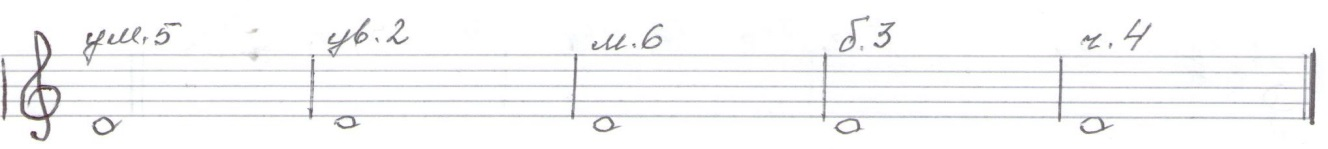 ум.5 ув.2 м.6 б.3 ч.4